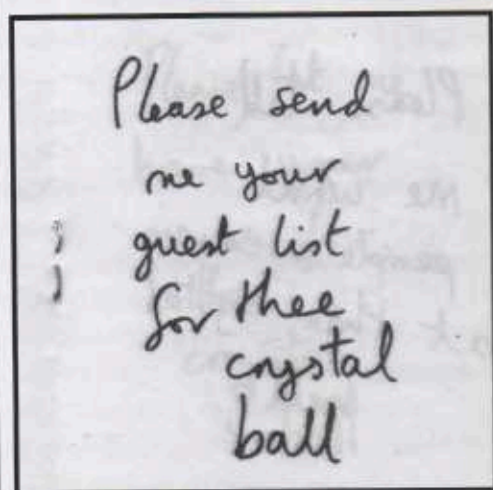 Please send
me your
guest list
for thee
crystal
ball